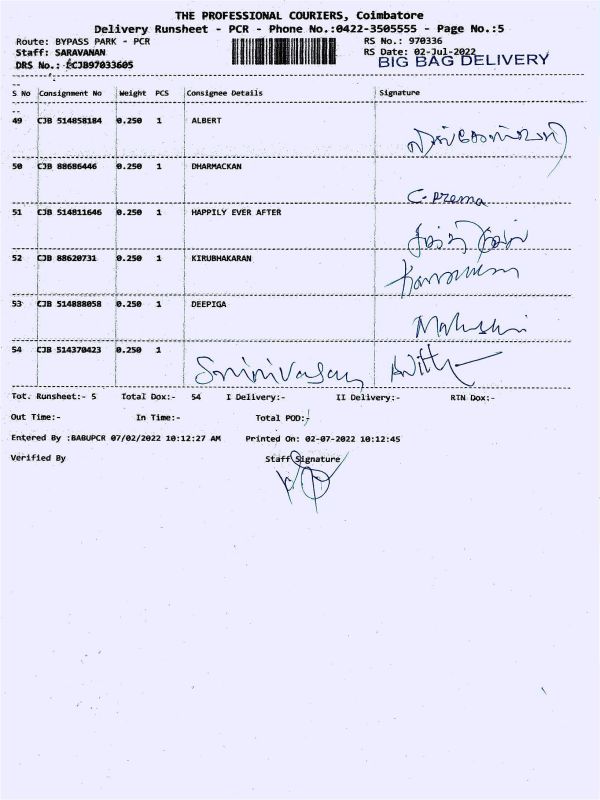 THE PROFESSIONAL COURIERS, Coimbatore
Delivery Runsheet - PCR - Phone No.:0422-3505555 - Page No.:5
Route: BYPASS PARK - PCR
RS No.: 970336
Staff: SARAVANAN
RS Date: 02-Jul-2022
DRS No.: ECJB97033605
BIG BAG DELIVERY
S No Consignment No Weight PCS Consignee Details Signature
49 CJB 514858184 0.250 1 ALBERT
50 CJB 88686446 0.250 1 DHARMACKAN
C. Prema
51 CJB 514811646 0.250 1 HAPPILY EVER AFTER
52 CJB 88620731 0.250 1 KIRUBHAKARAN
53 CJB 514888058 0.250 1 DEEPIGA
54 CJB 514370423 0.250 1
Srinivasan
Tot. Runsheet:- 5 Total Dox:- 54 I Delivery:- II Delivery:- RTN Dox:-
Out Time:- In Time:- Total POD:-
Entered By :BABUPCR 07/02/2022 10:12:27 AM Printed On: 02-07-2022 10:12:45
Verified By Staff Signature